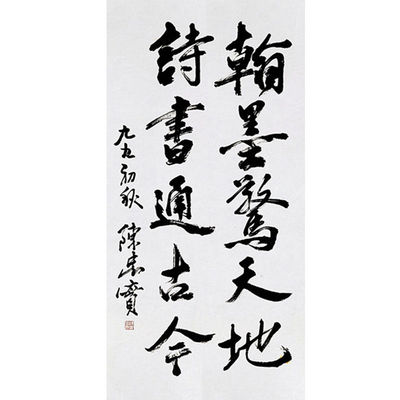 翰墨驚天地
詩書通古今
九五初秋 陳忠實